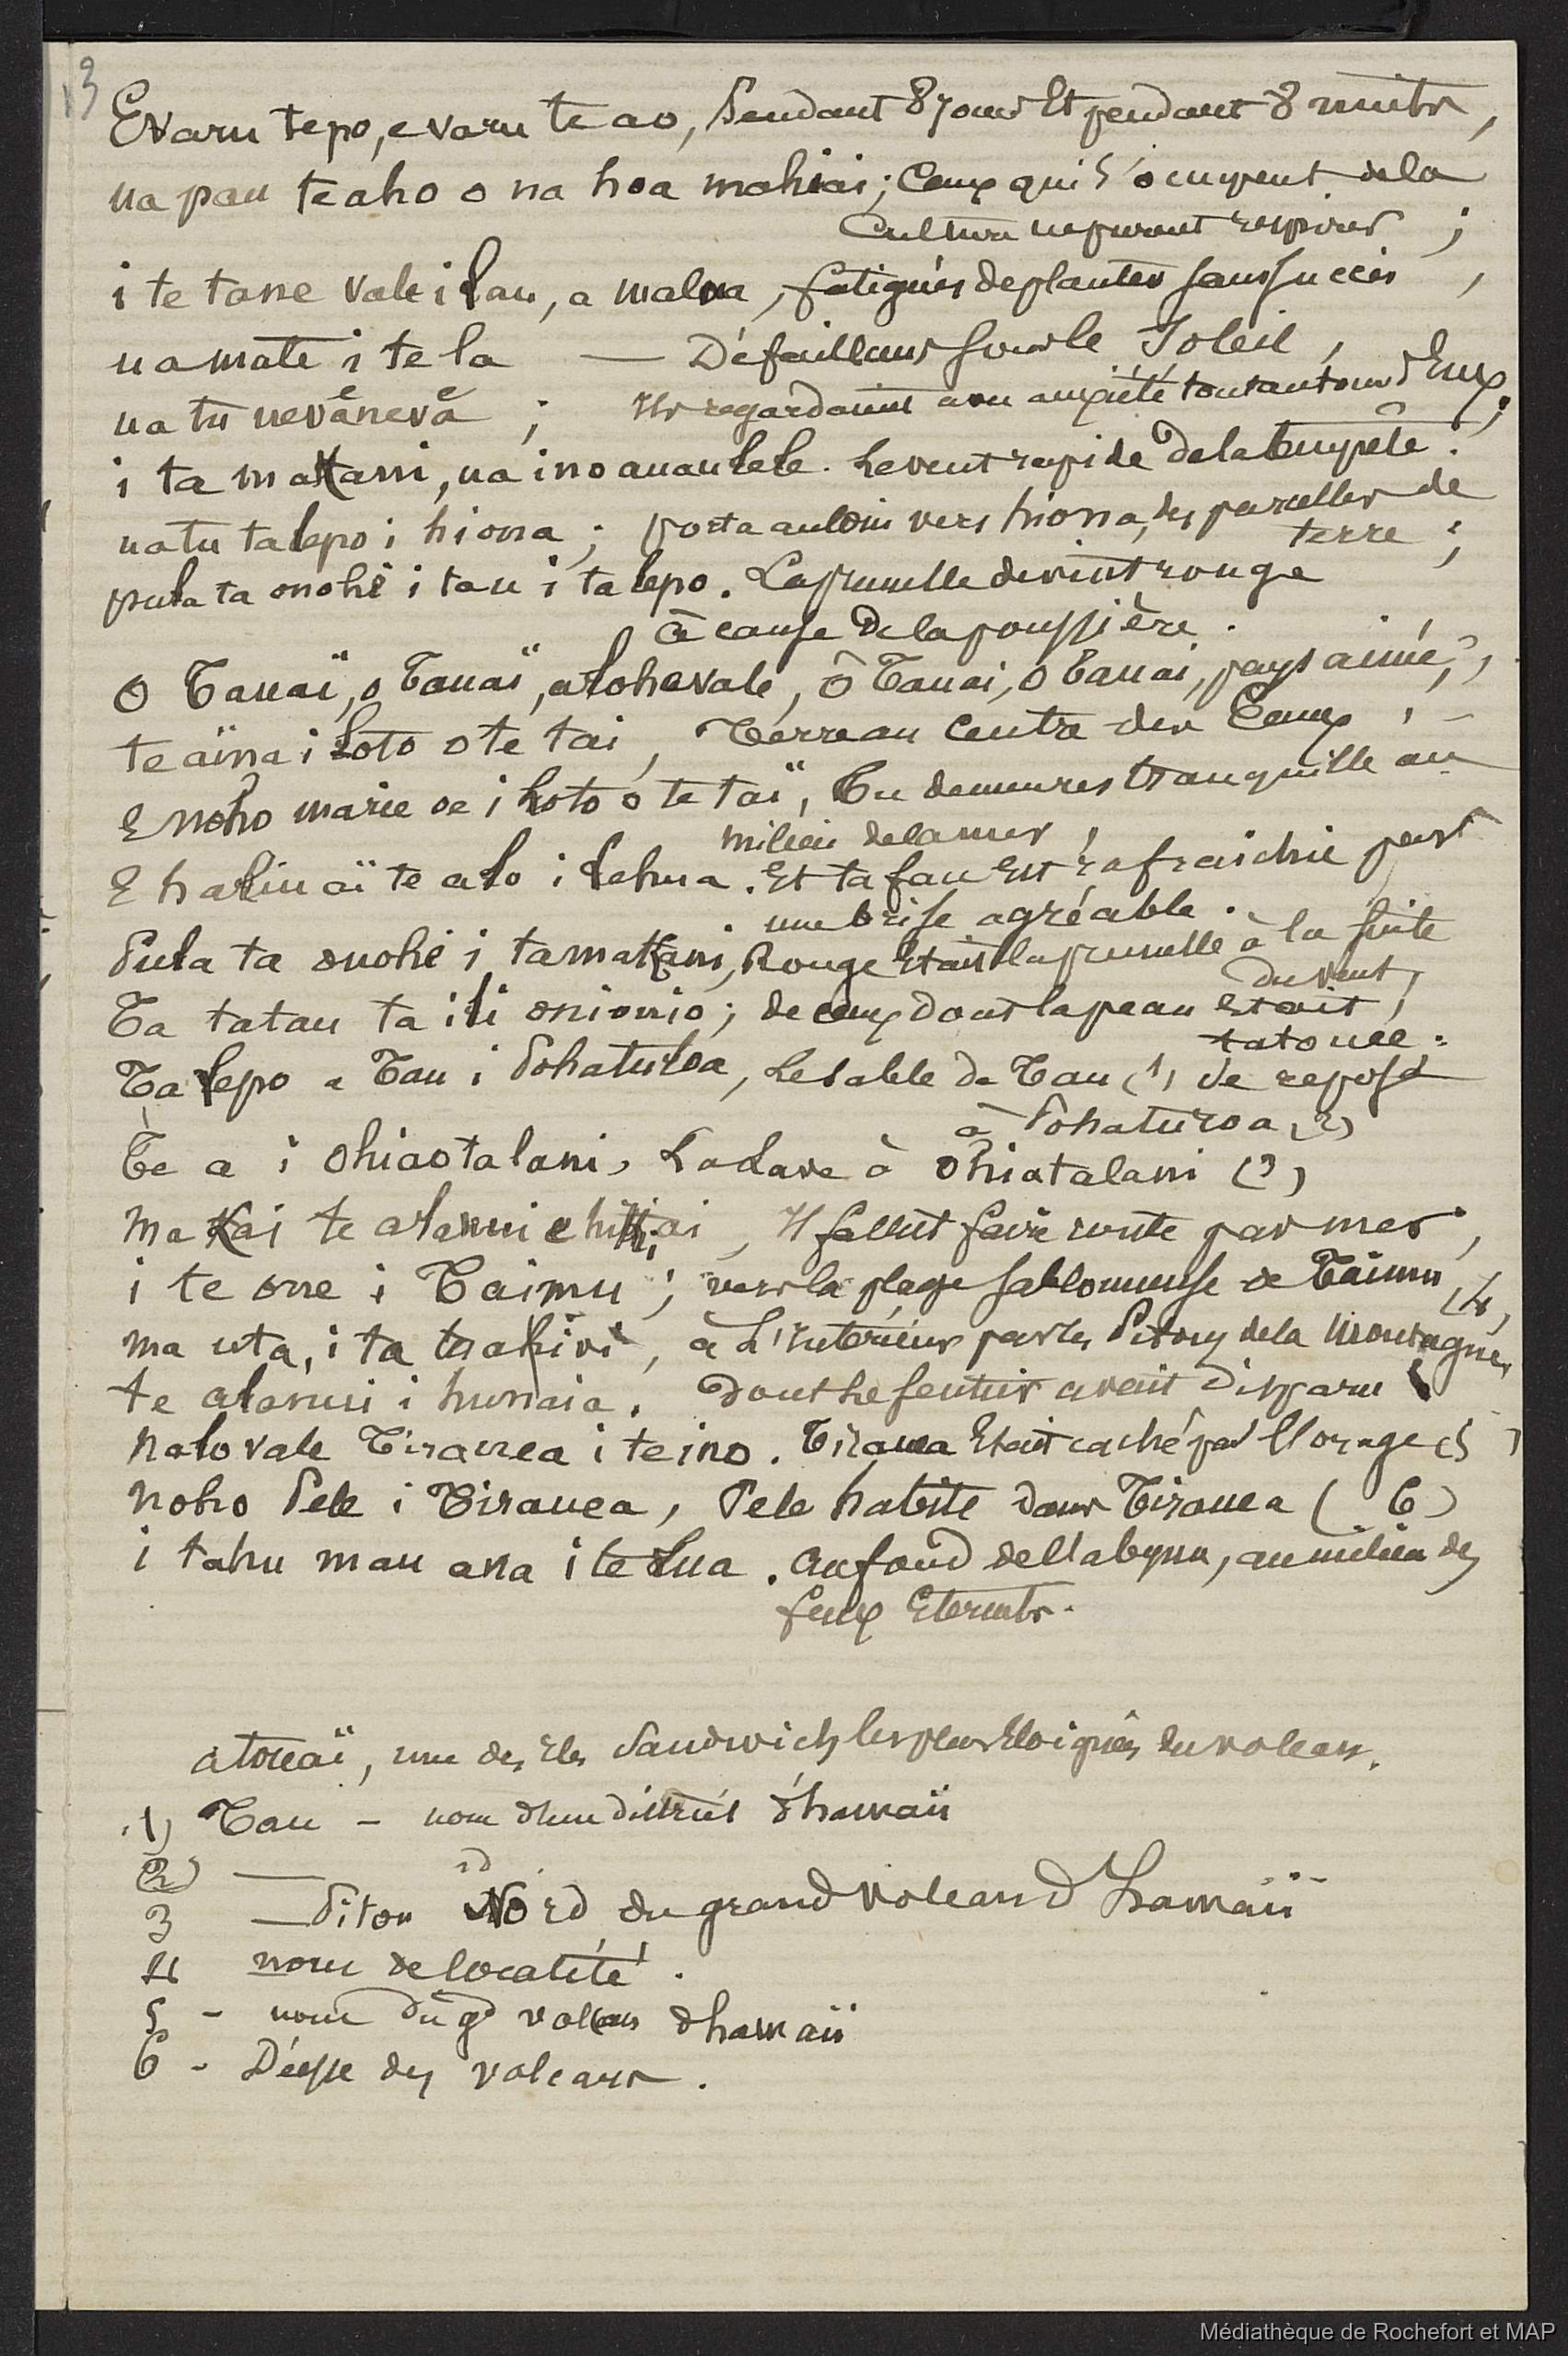 13
E varu te po, e varu te ao, Pendant 8 jours Et pendant 8 nuits,
ua pau te aho o na hoa mahiai; Ceux qui s'occupent de la
Culture ne purent respirer ;
i te tane vale i lau, a malua, fatigués de planter sans succès,
ua mate i te la — Défaillans sous le Soleil,
ua tu nevaneva ; Ils regardaient avec anxiété tout autour d'Eux;
i ta matani, ua ino auaulele. Le vent rapide de la tempête.
ua tu ta lepo i hiona ; porta au loin vers hiona, des parcelles de
terre ;
pula ta onohi i tau i ta lepo. La prunelle devint rouge
à cause de la poussière.
O Tauaï, o Tauaï, aloha vale, ô Tauai, ô Tauai, pays aimé,
te aïna i loto o te tai, Terre au Centre des Eaux,
E noho marie oe i loto o te taï, Tu demeures tranquille au
milieu de la mer,
E halinaï te alo i lehua. Et ta face est rafraichie par
une brise agréable.
Pula ta onohi i ta matani, Rouge Etait la prunelle à la suite
du vent,
Ta tatau ta ili onionio; de ceux dont la peau Etait
tatouée.
Ta lepo a Tau i Pohaturoa, Le sable de Tau (1) se reposa
à Pohaturoa (2)
Te a i Ohiaotalani, La Lave à Ohiatalani (3)
ma kai te alanui e hiti ai, Il fallut faire route par mer,
i te one i Taimu ; vers la plage sablonneuse de Taimu (4)
ma uta, i ta tualivi, à L'intérieur par les Pitons de la Montagne,
te alanui i hunaia. Dont le sentier avait disparu
Nalo vale Tirauea i te ino. Tirauea Etait caché par l'orage (5)
Noho Pele i Tirauea, Pele habite dans Tirauea (6)
i tahu mau ana i te Lua. Au fond de l'abyme, au milieu des
feux Eternels.
atouaï, une des Iles Sandwich les plus Eloignées du volcan.
1) Tau — nom d'un district d'hawaii
2) — id
3 — Piton Nord du grand volcan d'hawaii
4 nom de localité.
5 - nom du gd volcan d'hawaii
6 - Déesse des volcans.
Médiathèque de Rochefort et MAP